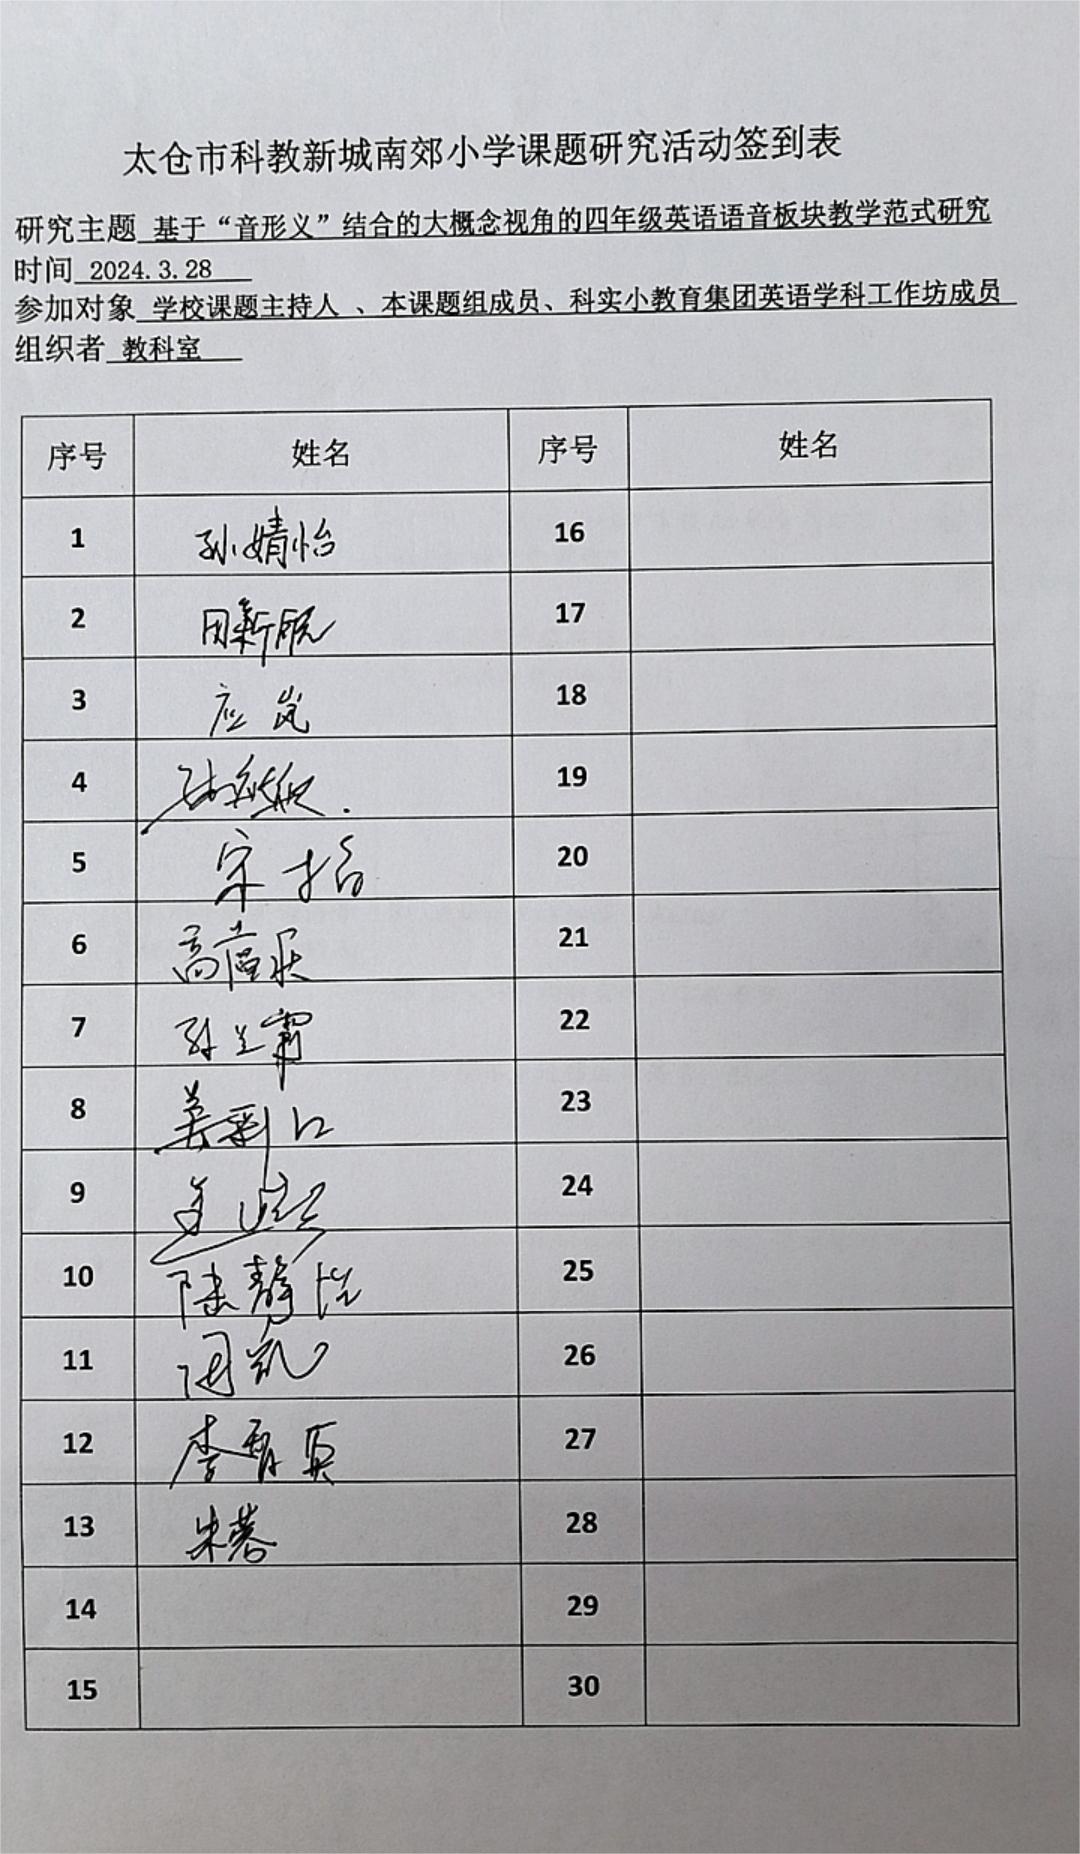 太仓市科教新城南郊小学课题研究活动签到表
研究主题 基于“音形义”结合的大概念视角的四年级英语语音板块教学范式研究
时间 2024.3.28
参加对象 学校课题主持人 、本课题组成员、科实小教育集团英语学科工作坊成员
组织者 教科室
序号 姓名 序号 姓名
1 孙婧怡 16
2 17
3 应岚 18
4 19
5 宋 20
6 高 21
7 22
8 23
9 24
10 陆静怡 25
11 周凯 26
12 李 27
13 朱蓉 28
14 29
15 30